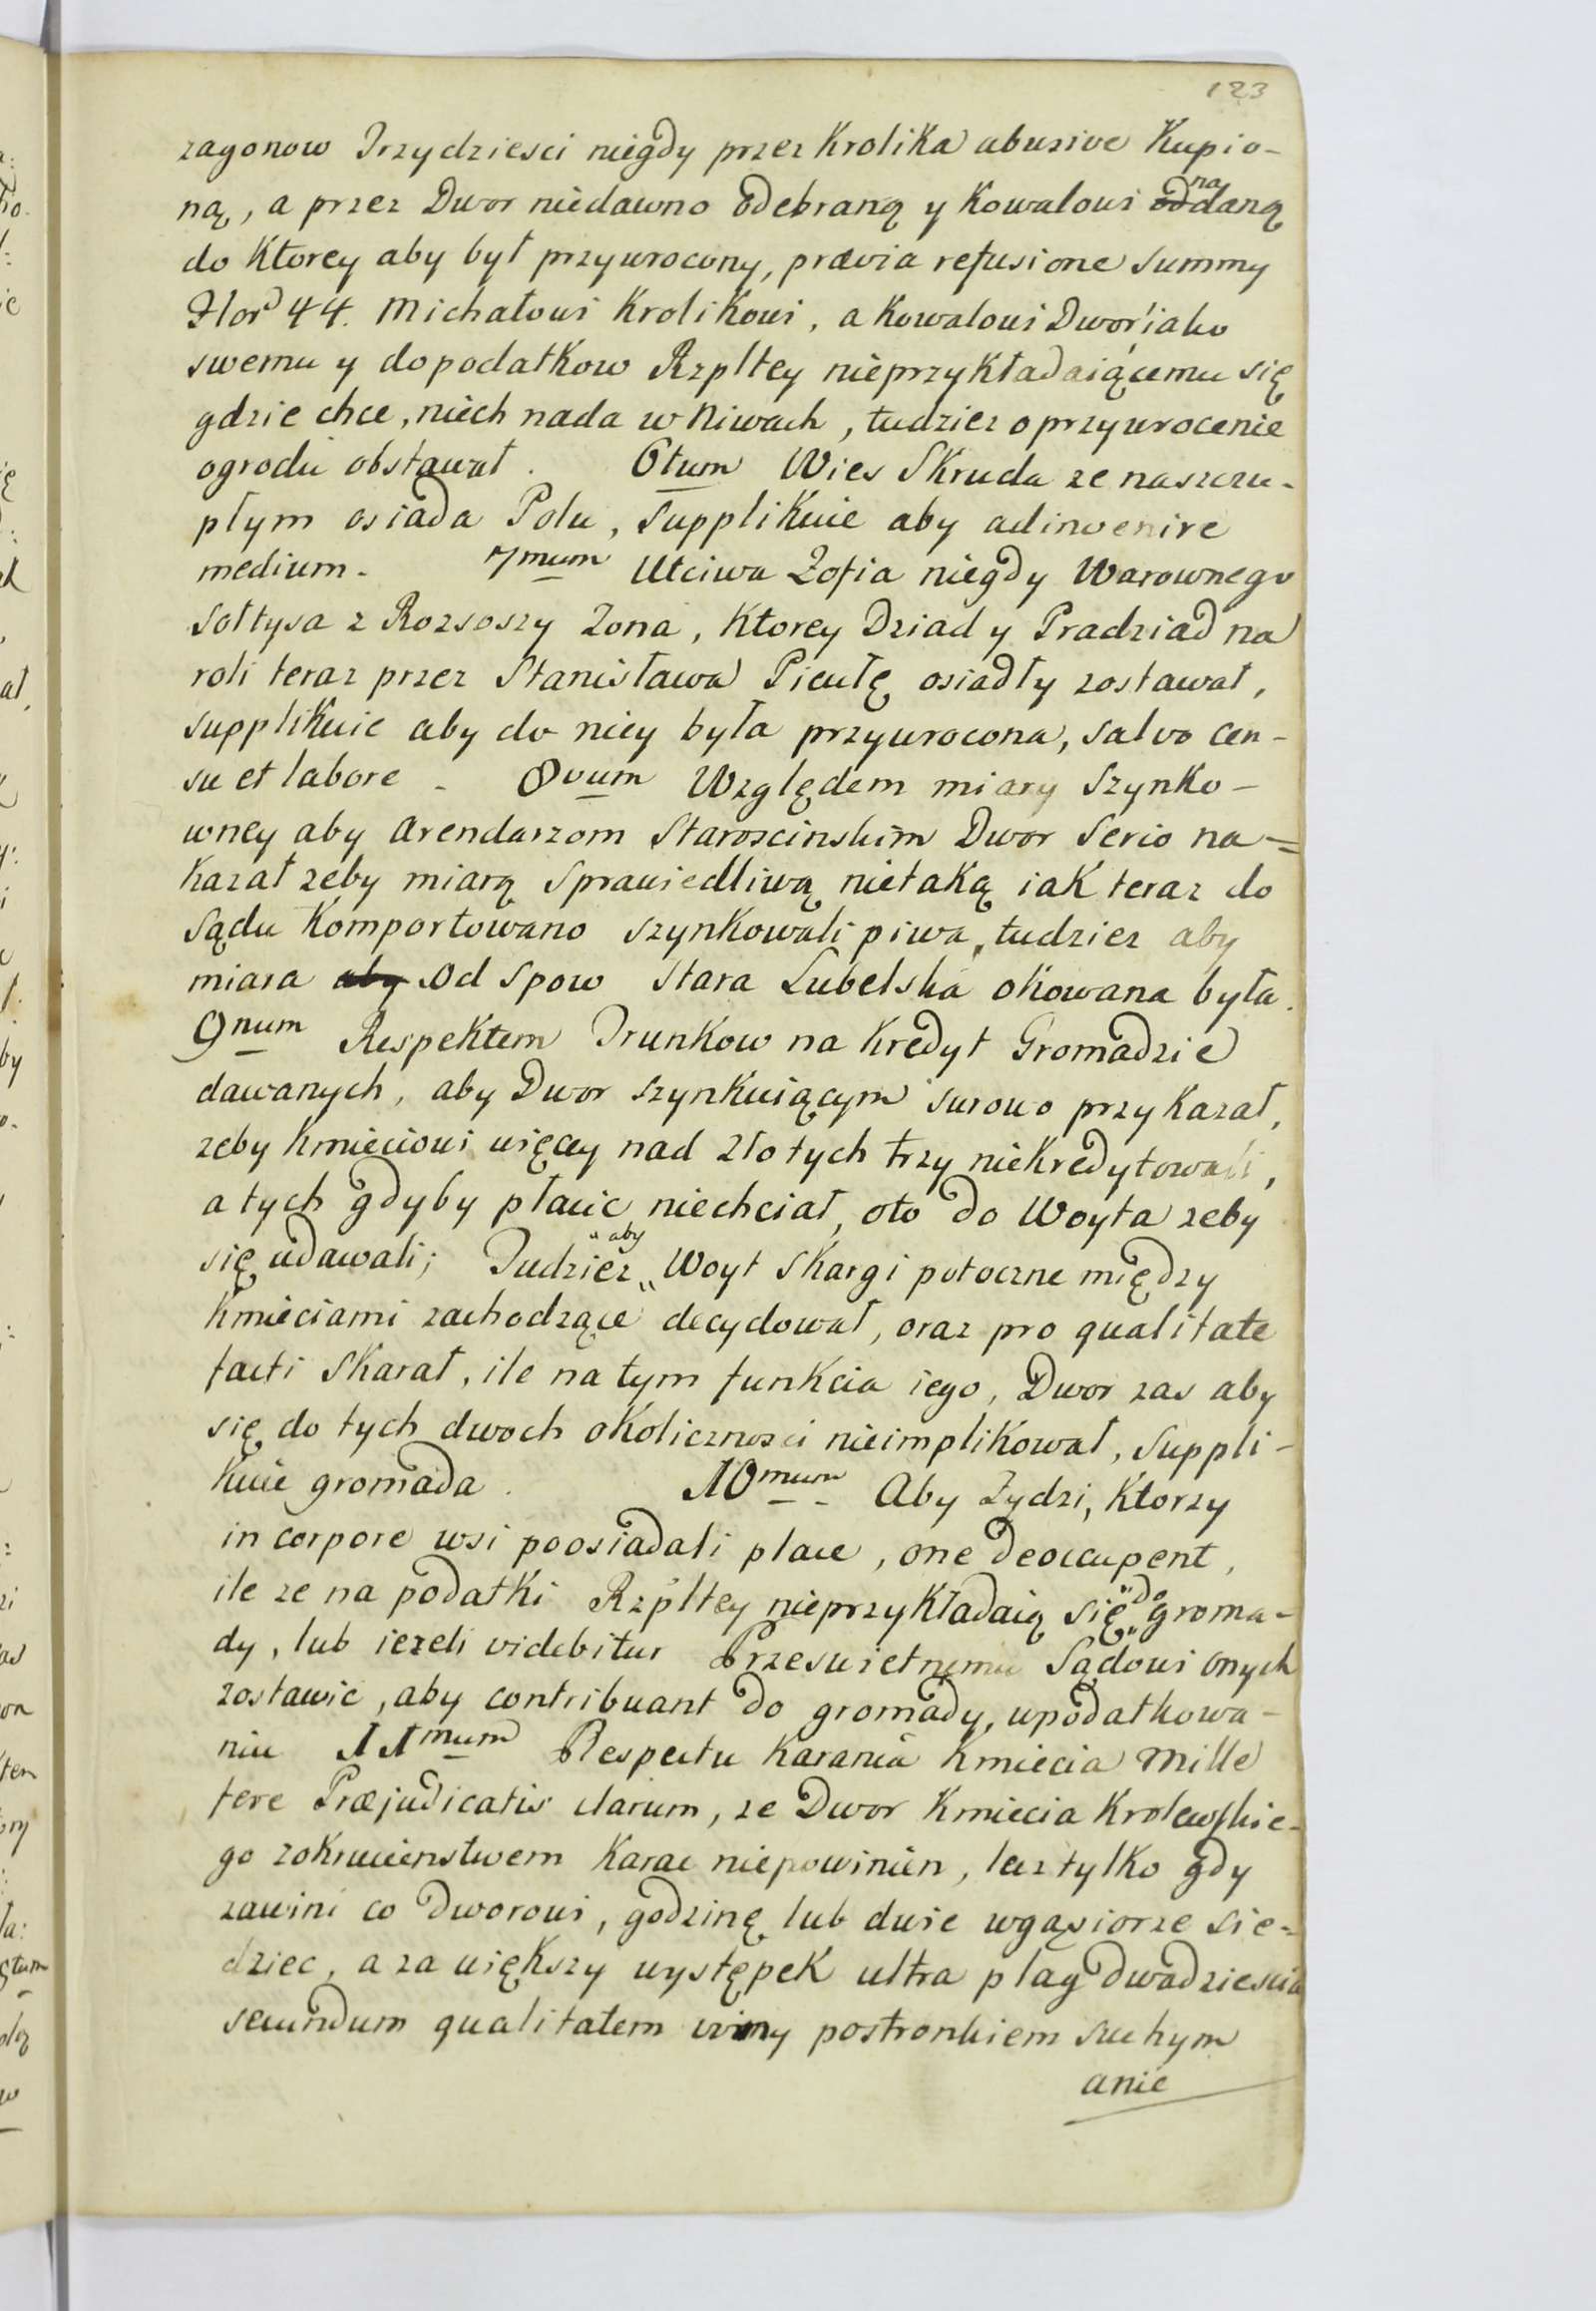 123
zagonow Trzydziesci niegdy przez Krolika abusive Kupio-
ną, a przez Dwor niedawno odebraną y Kowalowi oddaną na
do Ktorey aby był przywrocony, prævia refusione Summy
Flor 44. Michałowi Krolikowi, a Kowalowi Dwor iako
swemu y do podatkow Rzpltey nieprzykładaiącemu się
gdzie chce, niech nada w Niwach, tudziez o przywrocenie
ogrodu obstawał. 6tum Wies Skruda ze naszczu-
płym osiada Polu, Supplikuie aby adinvenire
medium. 7mum Utciwa Zofia niegdy Warownego
Sołtysa z Rozsoszy Zona, Ktorey Dziad y Pradziad na
roli teraz przez Stanisława Picułę osiadły zostawał,
supplikuie aby do niey była przywrocona, salvo cen-
su et labore. 8vum Względem miary Szynko-
wney aby Arendarzom Staroscinskim Dwor Serio na=
kazał zeby miarą Sprawiedliwą nietaką iak teraz do
Sądu Komportowano szynkowali piwa, tudziez aby
miara aby od Spow Stara Lubelska okowana była.
9num Respektem Trunkow na Kredyt Gromadzie
dawanych, aby Dwor szynkuiącym surowo przykazał,
zeby Kmieciowi więcey nad złotych trzy niekredytowali,
a tych gdyby płacic niechciał, oto do Woyta zeby
się udawali; Tudziez aby Woyt Skargi potoczne między
Kmieciami zachodzące decydował, oraz pro qualitate
facti Skarał, ile na tym funkcia iego, Dwor zas aby
się do tych dwoch okolicznosci nieimplikował, Suppli-
kuie gromada. 10mum Aby Zydzi, Ktorzy
in corpore wsi poosiadali place, one deoccupent,
ile ze na podatki Rzpltey nieprzykładaią się do groma-
dy, lub iezeli videbitur Przeswietnemu Sądowi onych
zostawic, aby contribuant do gromady, upodatkowa-
niu 11mum Respectu Karania Kmiecia Mille
fere Præjudicatis clarum, ze Dwor Kmiecia Krolewskie-
go zokrucienstwem Karac niepowinien, lecz tylko gdy
zawini co Dworowi, godzinę lub dwie wgąsiorze sie-
dziec, a za większy występek ultra plag dwadziescia
secundum qualitatem winy postronkiem suchym
anie